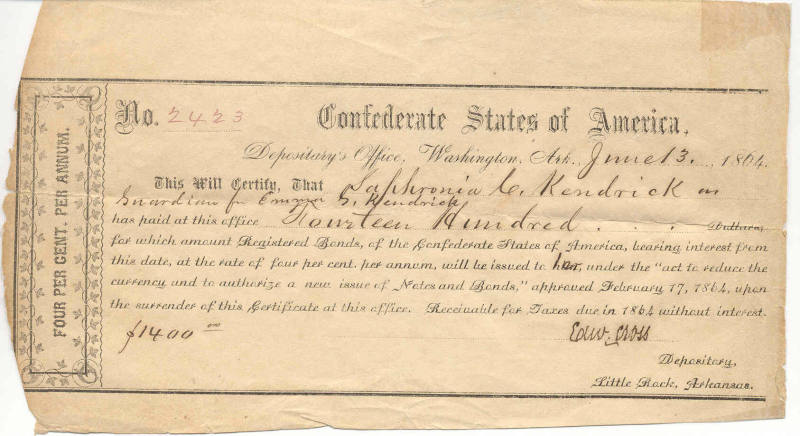 FOUR PER CENT. PER ANNUM.
No. 2423 Confederate States of America.
Depositary's Office, Washington, Ark., June 13. 1864.
This Will Certify, That Saphronia C. Kendrick as
Guardian for Emma S. Kendrick
has paid at this office Fourteen Hundred . . . Dollars,
for which amount Registered Bonds, of the Confederate States of America, bearing interest from
this date, at the rate of four per cent. per annum, will be issued to her, under the "act to reduce the
currency and to authorize a new issue of Notes and Bonds," approved February 17, 1864, upon
the surrender of this Certificate at this office. Receivable for Taxes due in 1864 without interest.
$1400 Edw. Cross
Depositary,
Little Rock, Arkansas.